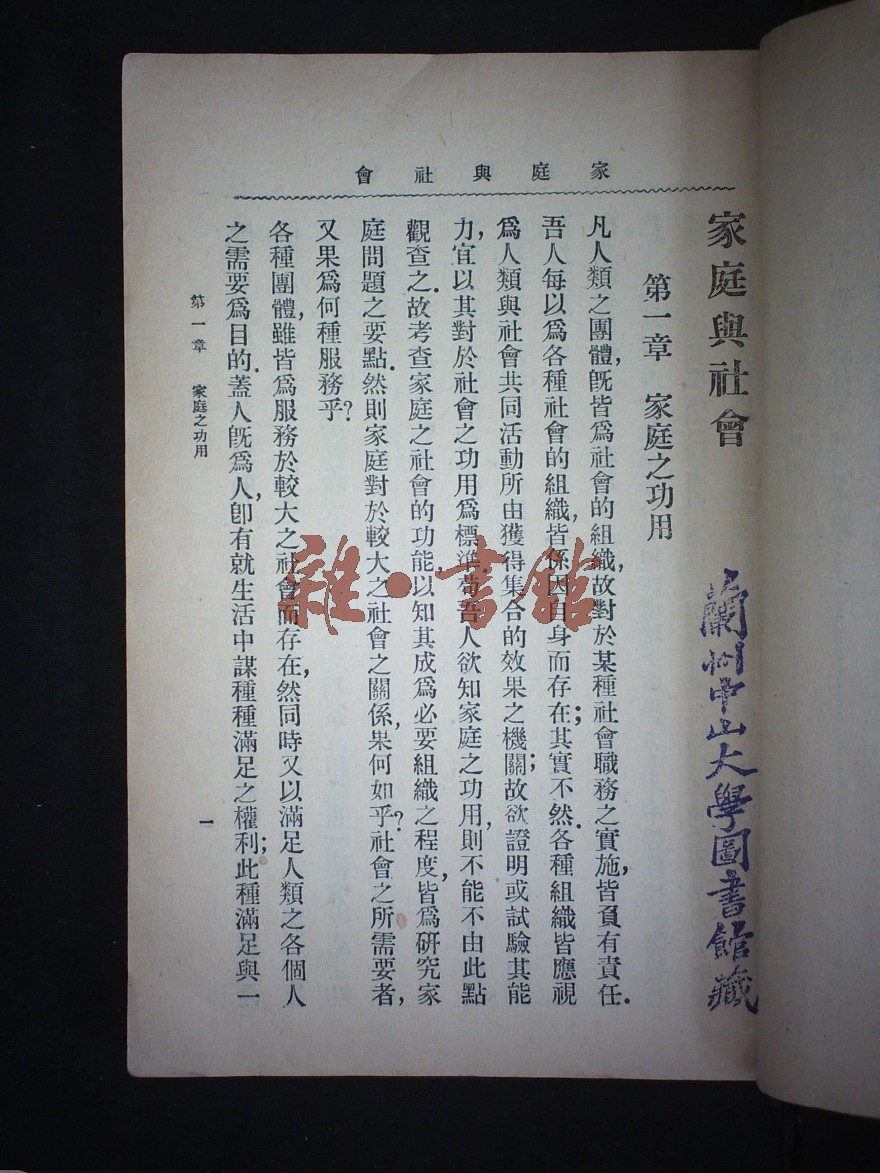 家庭與社會
家庭與社會
第一章　家庭之功用
凡人類之團體,旣皆爲社會的組織,故對於某種社會職務之實施,皆負有責任.
吾人每以爲各種社會的組織,皆係因自身而存在;其實不然.各種組織皆應視
爲人類與社會共同活動所由獲得集合的效果之機關;故欲證明或試驗其能
力,宜以其對於社會之功用爲標準.苟吾人欲知家庭之功用,則不能不由此點
觀查之.故考查家庭之社會的功能,以知其成爲必要組織之程度,皆爲研究家
庭問題之要點.然則家庭對於較大之社會之關係,果何如乎?社會之所需要者,
又果爲何種服務乎?
各種團體,雖皆爲服務於較大之社會而存在,然同時又以滿足人類之各個人
之需要爲目的.蓋人旣爲人,卽有就生活中謀種種滿足之權利;此種滿足與一
第一章　家庭之功用
一
蘭州中山大學圖書館藏
雜·書館